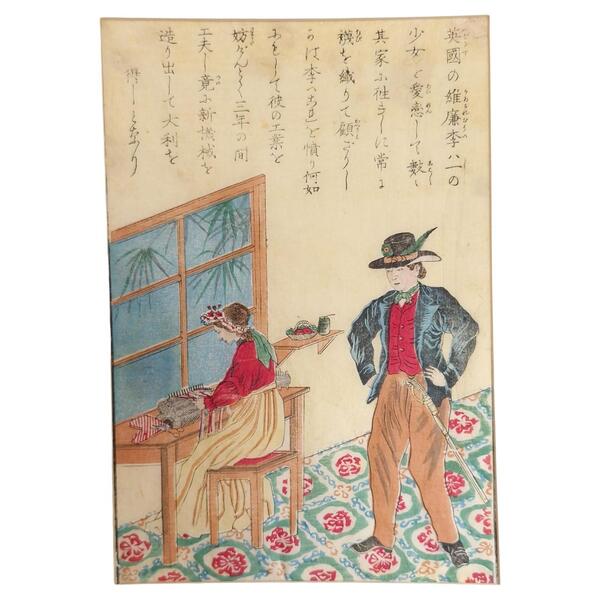 英國の雄廉李ハ一の
少女を愛恋して數〻
其家に往きしに常に
襪を織りて顧ざりし
かば李ハ之を憤り何如
にもして彼の工業を
妨げんと三年の間
工夫し竟に新機械を
造り出して大利を
得しとなり